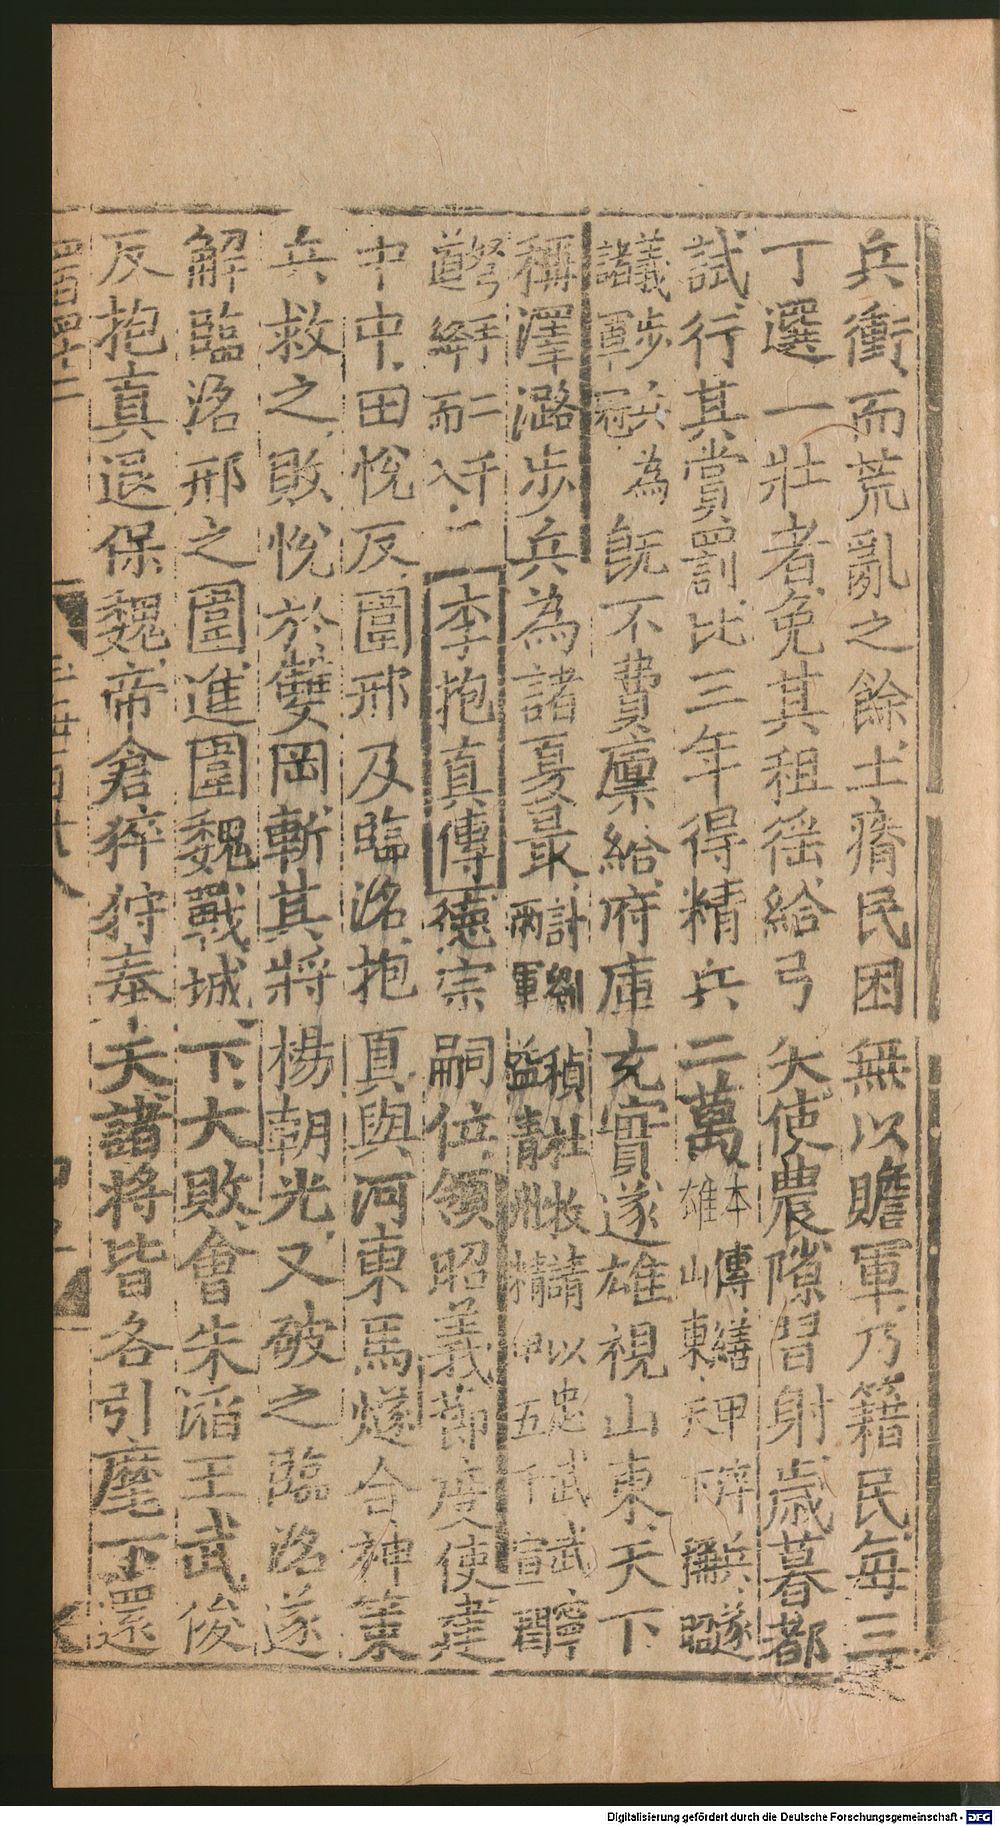 兵衝而荒亂之餘土瘠民困無以贍軍乃籍民每三
丁選一壯者免其租徭給弓矢使農隙習射歲暮都
試行其賞罰比三年得精兵二萬本傳繕甲淬兵遂雄山東天下撫昭
義步兵為諸軍冠既不費廩給府庫充實遂雄視山東天下
稱澤潞步兵為諸夏最計劉稹杜牧請以忠武武寧兩軍益青州精甲五千宣潤
弩手二千道絳而入李抱真傳德宗嗣位領昭義節度使建
中中田悅反圍邢及臨洺抱真與河東馬燧合神策
兵救之敗悅於雙岡斬其將楊朝光又破之臨洺遂
解臨洺邢之圍進圍魏戰城下大敗會朱滔王武俊
反抱真退保魏帝倉猝狩奉天諸將皆各引麾下還
Digitalisierung gefördert durch die Deutsche Forschungsgemeinschaft - DFG